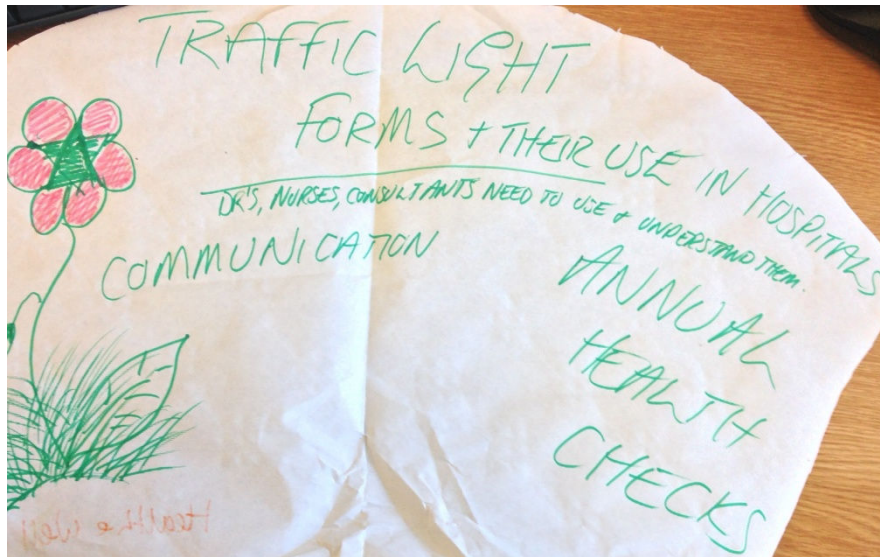 TRAFFIC LIGHT
FORMS + THEIR USE IN HOSPITALS
DR'S, NURSES, CONSULTANTS NEED TO USE & UNDERSTAND THEM.
COMMUNICATION
ANNUAL
HEALTH
CHECKS